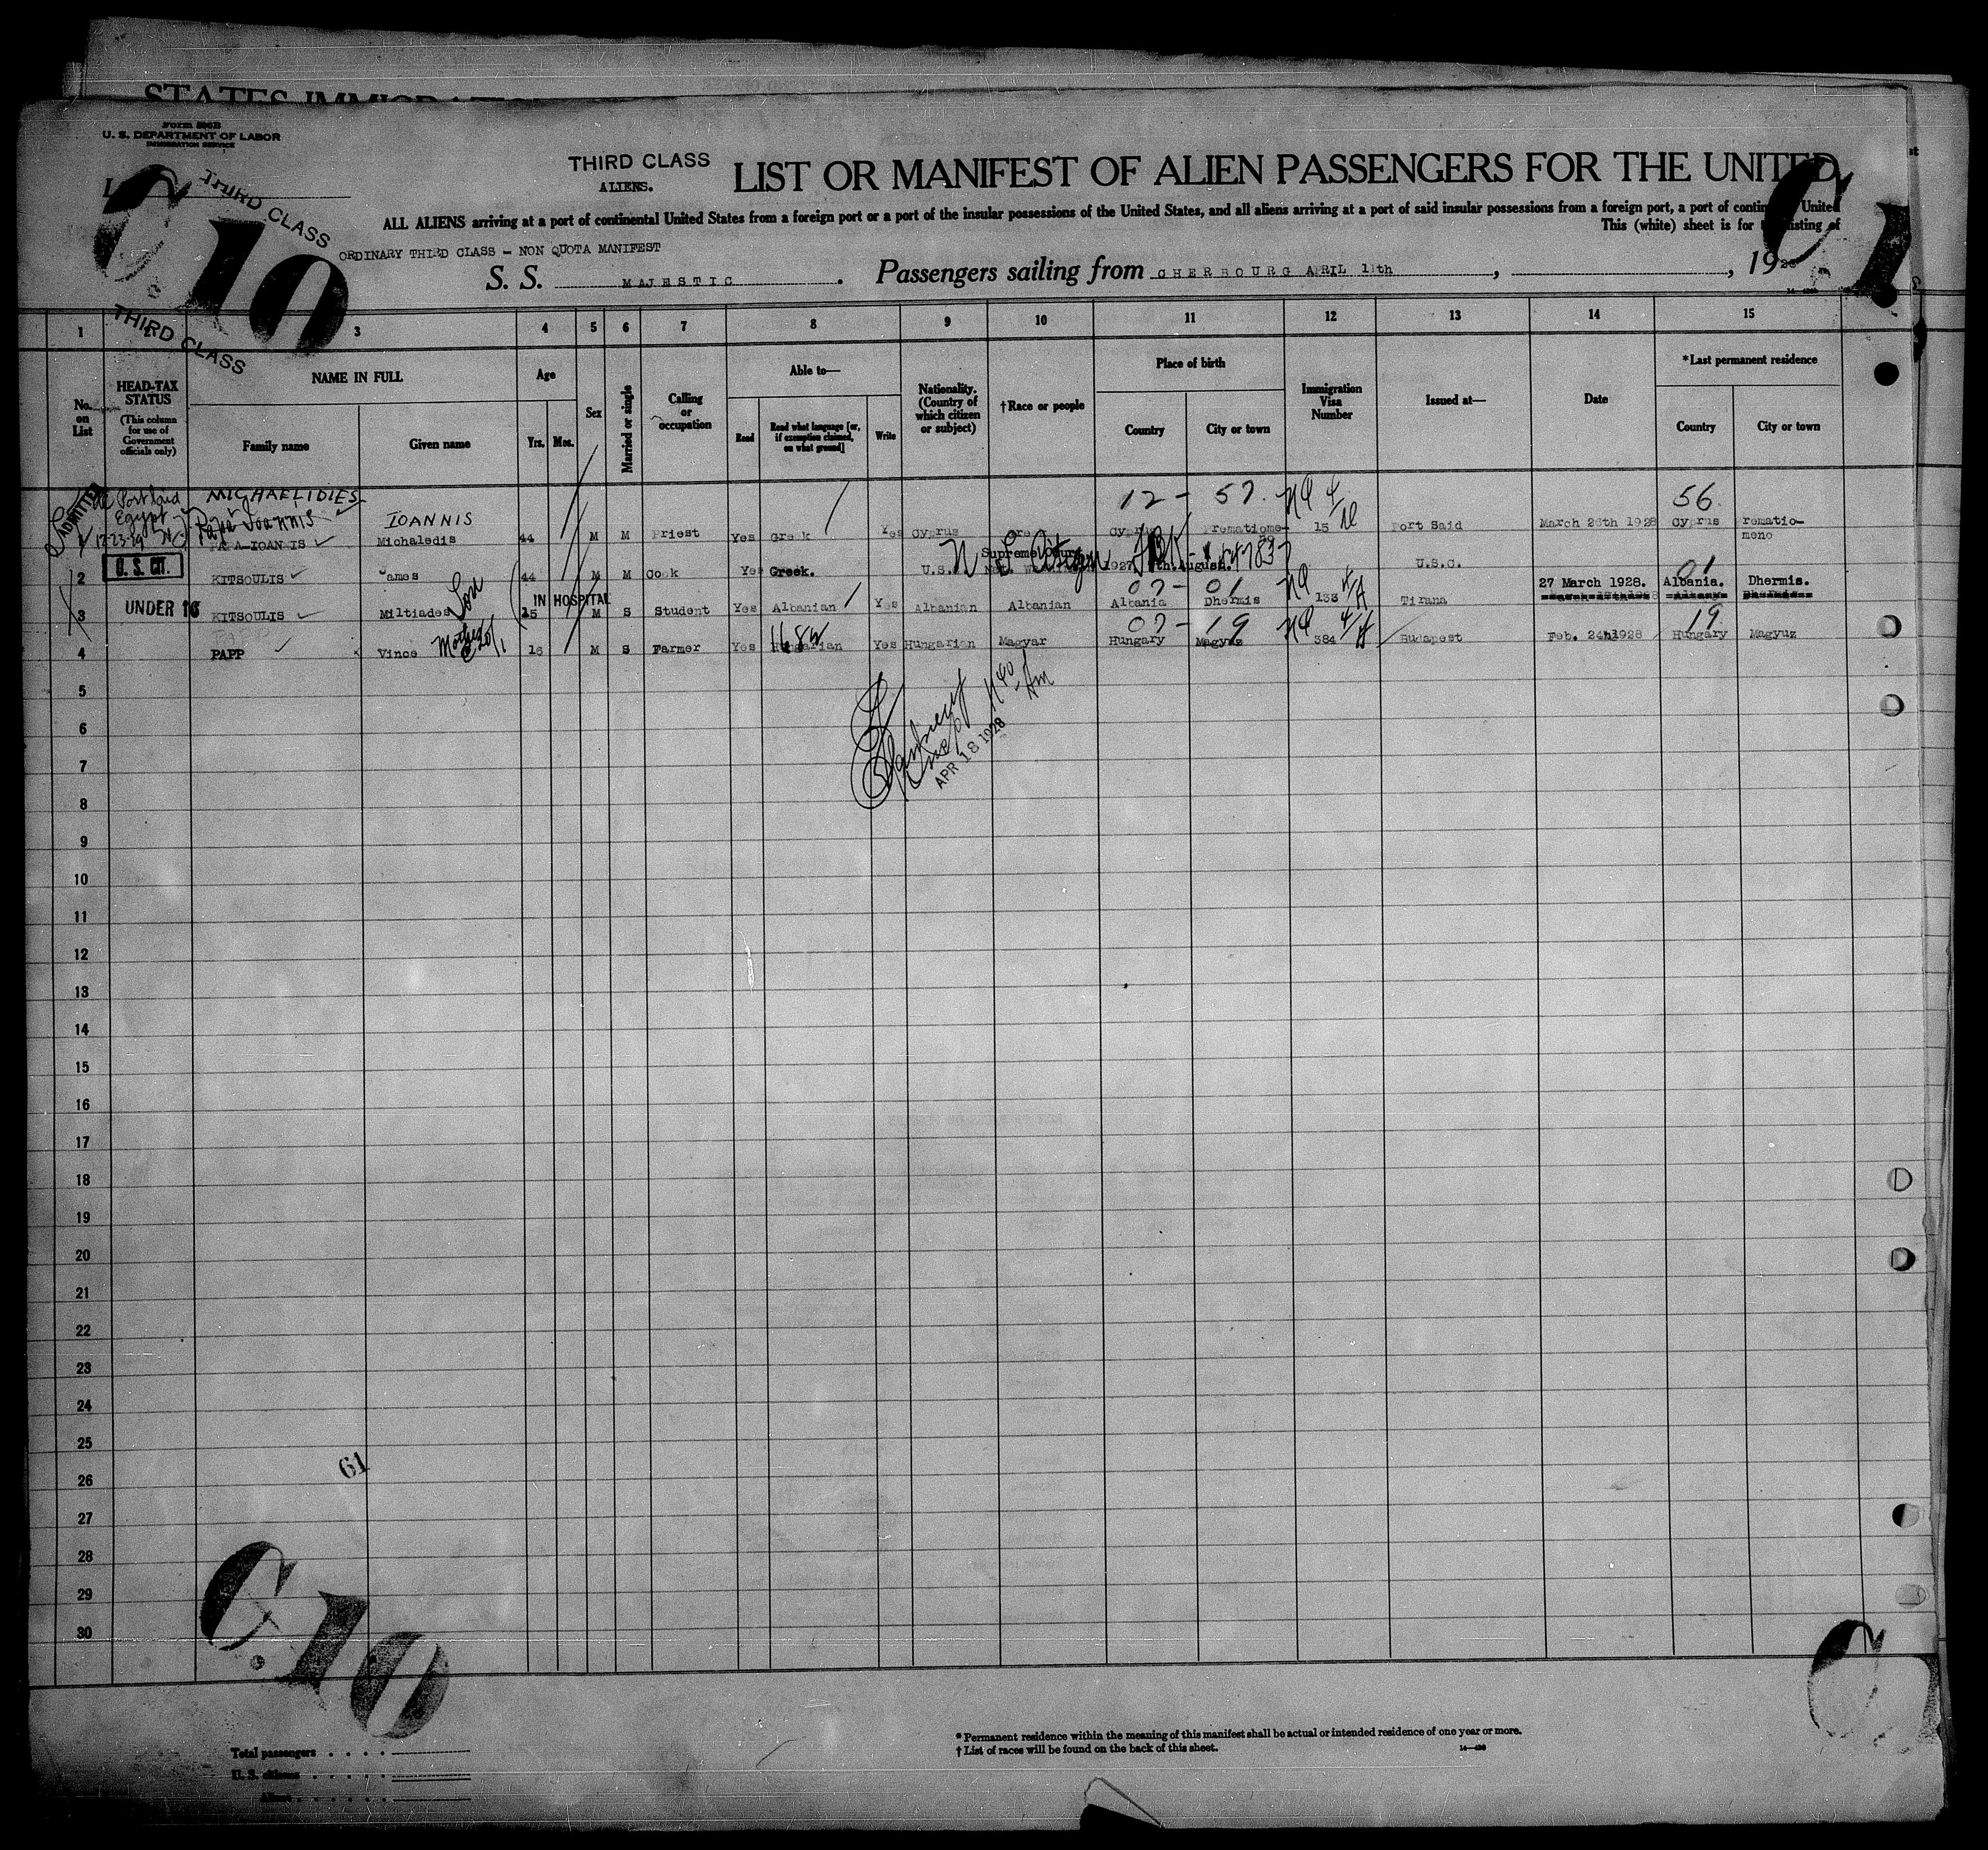 STATES IMMIGRATION
Form 500B
U. S. DEPARTMENT OF LABOR
IMMIGRATION SERVICE
THIRD CLASS
ALIENS.
LIST OR MANIFEST OF ALIEN PASSENGERS FOR THE UNITED
THIRD CLASS
C 10
ALL ALIENS arriving at a port of continental United States from a foreign port or a port of the insular possessions of the United States, and all aliens arriving at a port of said insular possessions from a foreign port, a port of contin United
This (white) sheet is for the listing of
ORDINARY THIRD CLASS - NON QUOTA MANIFEST
S. S. MAJESTIC. Passengers sailing from CHERBOURG APRIL 11th, , 1928
C 1
THIRD CLASS
1 3 4 5 6 7 8 9 10 11 12 13 14 15
No. on List
HEAD-TAX STATUS
(This column for use of Government officials only)
NAME IN FULL
Family name Given name
Age
Yrs. Mos.
Sex
Married or single
Calling or occupation
Able to—
Read
Read what language [or, if exemption claimed, on what ground]
Write
Nationality. (Country of which citizen or subject)
†Race or people
Place of birth
Country City or town
Immigration Visa Number
Issued at—
Date
*Last permanent residence
Country City or town
ADMITTED Portland MICHAELIDIES 12 - 57. NQ 4 56
Egypt Papa Ioannis IOANNIS
1 12-23-29 PAPA-IOANNIS Michaledis 44 M M Priest Yes Greek Yes Cyprus Greek Cyprus Prematiomeno 15 Port Said March 26th 1928 Cyprus rematiomeno
Supreme Court
2 U. S. CIT. KITSOULIS James 44 M M Cook Yes Greek. U.S. Citizen 1927 August. U.S.C.
Son 07 - 01 NQ 01
IN HOSPITAL 27 March 1928. Albania. Dhermis.
3 UNDER 16 KITSOULIS Miltiades 15 M S Student Yes Albanian Yes Albanian Albanian Albania Dhermis 133 Tirana
Mother 1684 07 - 19 NQ 19
4 PAPP Vince 16 M S Farmer Yes Hungarian Yes Hungarian Magyar Hungary Magyuz 384 Budapest Feb. 24th 1928 Hungary Magyuz
5
Insp
6
APR 18 1928
7
8
9
10
11
12
13
14
15
16
17
18
19
20
21
22
23
24
25
26
61
27
28
29
30
C 10
C
* Permanent residence within the meaning of this manifest shall be actual or intended residence of one year or more.
† List of races will be found on the back of this sheet.
Total passengers . . . .
U. S. citizens . . . . .
Aliens . . . . . .